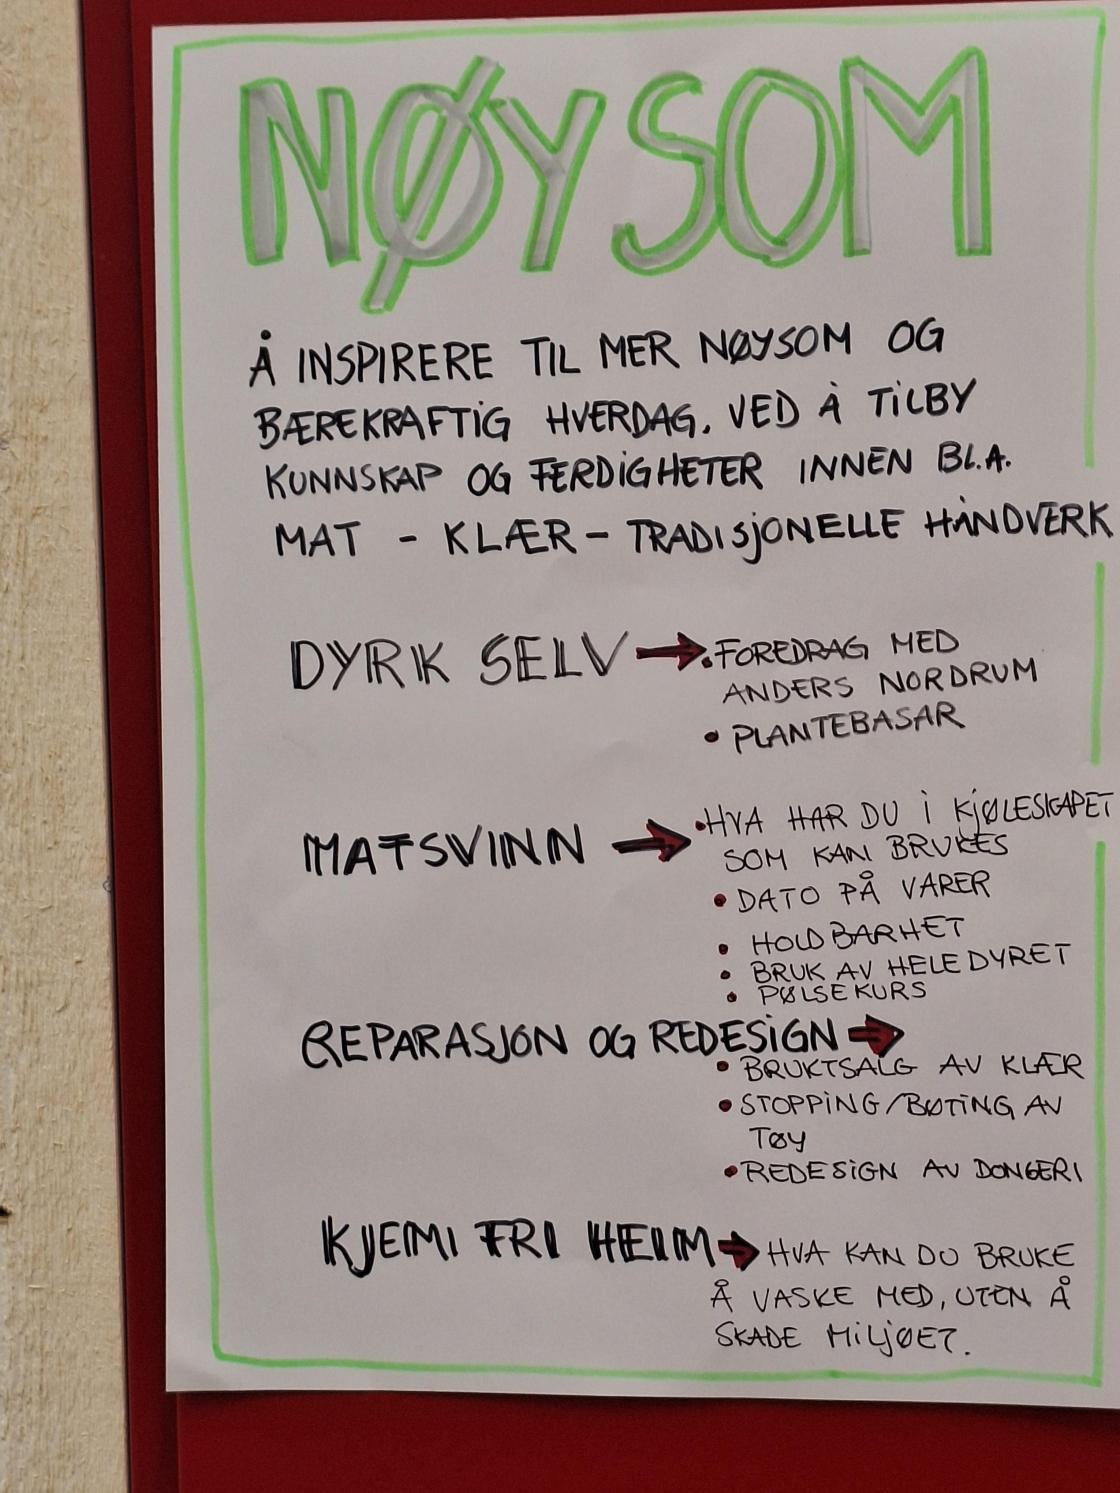 NØYSOM
Å INSPIRERE TIL MER NØYSOM OG
BÆREKRAFTIG HVERDAG, VED Å TILBY
KUNNSKAP OG FERDIGHETER INNEN BL.A.
MAT - KLÆR - TRADISJONELLE HÅNDVERK
DYRK SELV → • FOREDRAG MED
ANDERS NORDRUM
• PLANTEBASAR
MATSVINN → • HVA HAR DU I KJØLESKAPET
SOM KAN BRUKES
• DATO PÅ VARER
• HOLDBARHET
• BRUK AV HELE DYRET
• PØLSEKURS
REPARASJON OG REDESIGN →
• BRUKTSALG AV KLÆR
• STOPPING/BØTING AV
TØY
• REDESIGN AV DONGERI
KJEMI FRI HEIM → HVA KAN DU BRUKE
Å VASKE MED, UTEN Å
SKADE MILJØET.